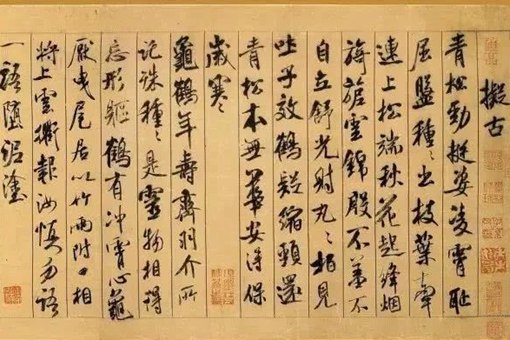 擬古
青松勁挺姿凌霄恥
屈盤種〻出枝葉牽
連上松端秋花起絳烟
旖旎雲錦殷不羞不
自立舒光射丸〻栢見
吐子效鶴疑縮頸還
青松本無華安得保
歲寒
龜鶴年壽齊羽介所
託殊種〻是靈物相得
忘形軀鶴有沖霄心龜
厭曳尾居以竹兩附口相
將上雲衢報汝慎勿語
一語墮泥塗